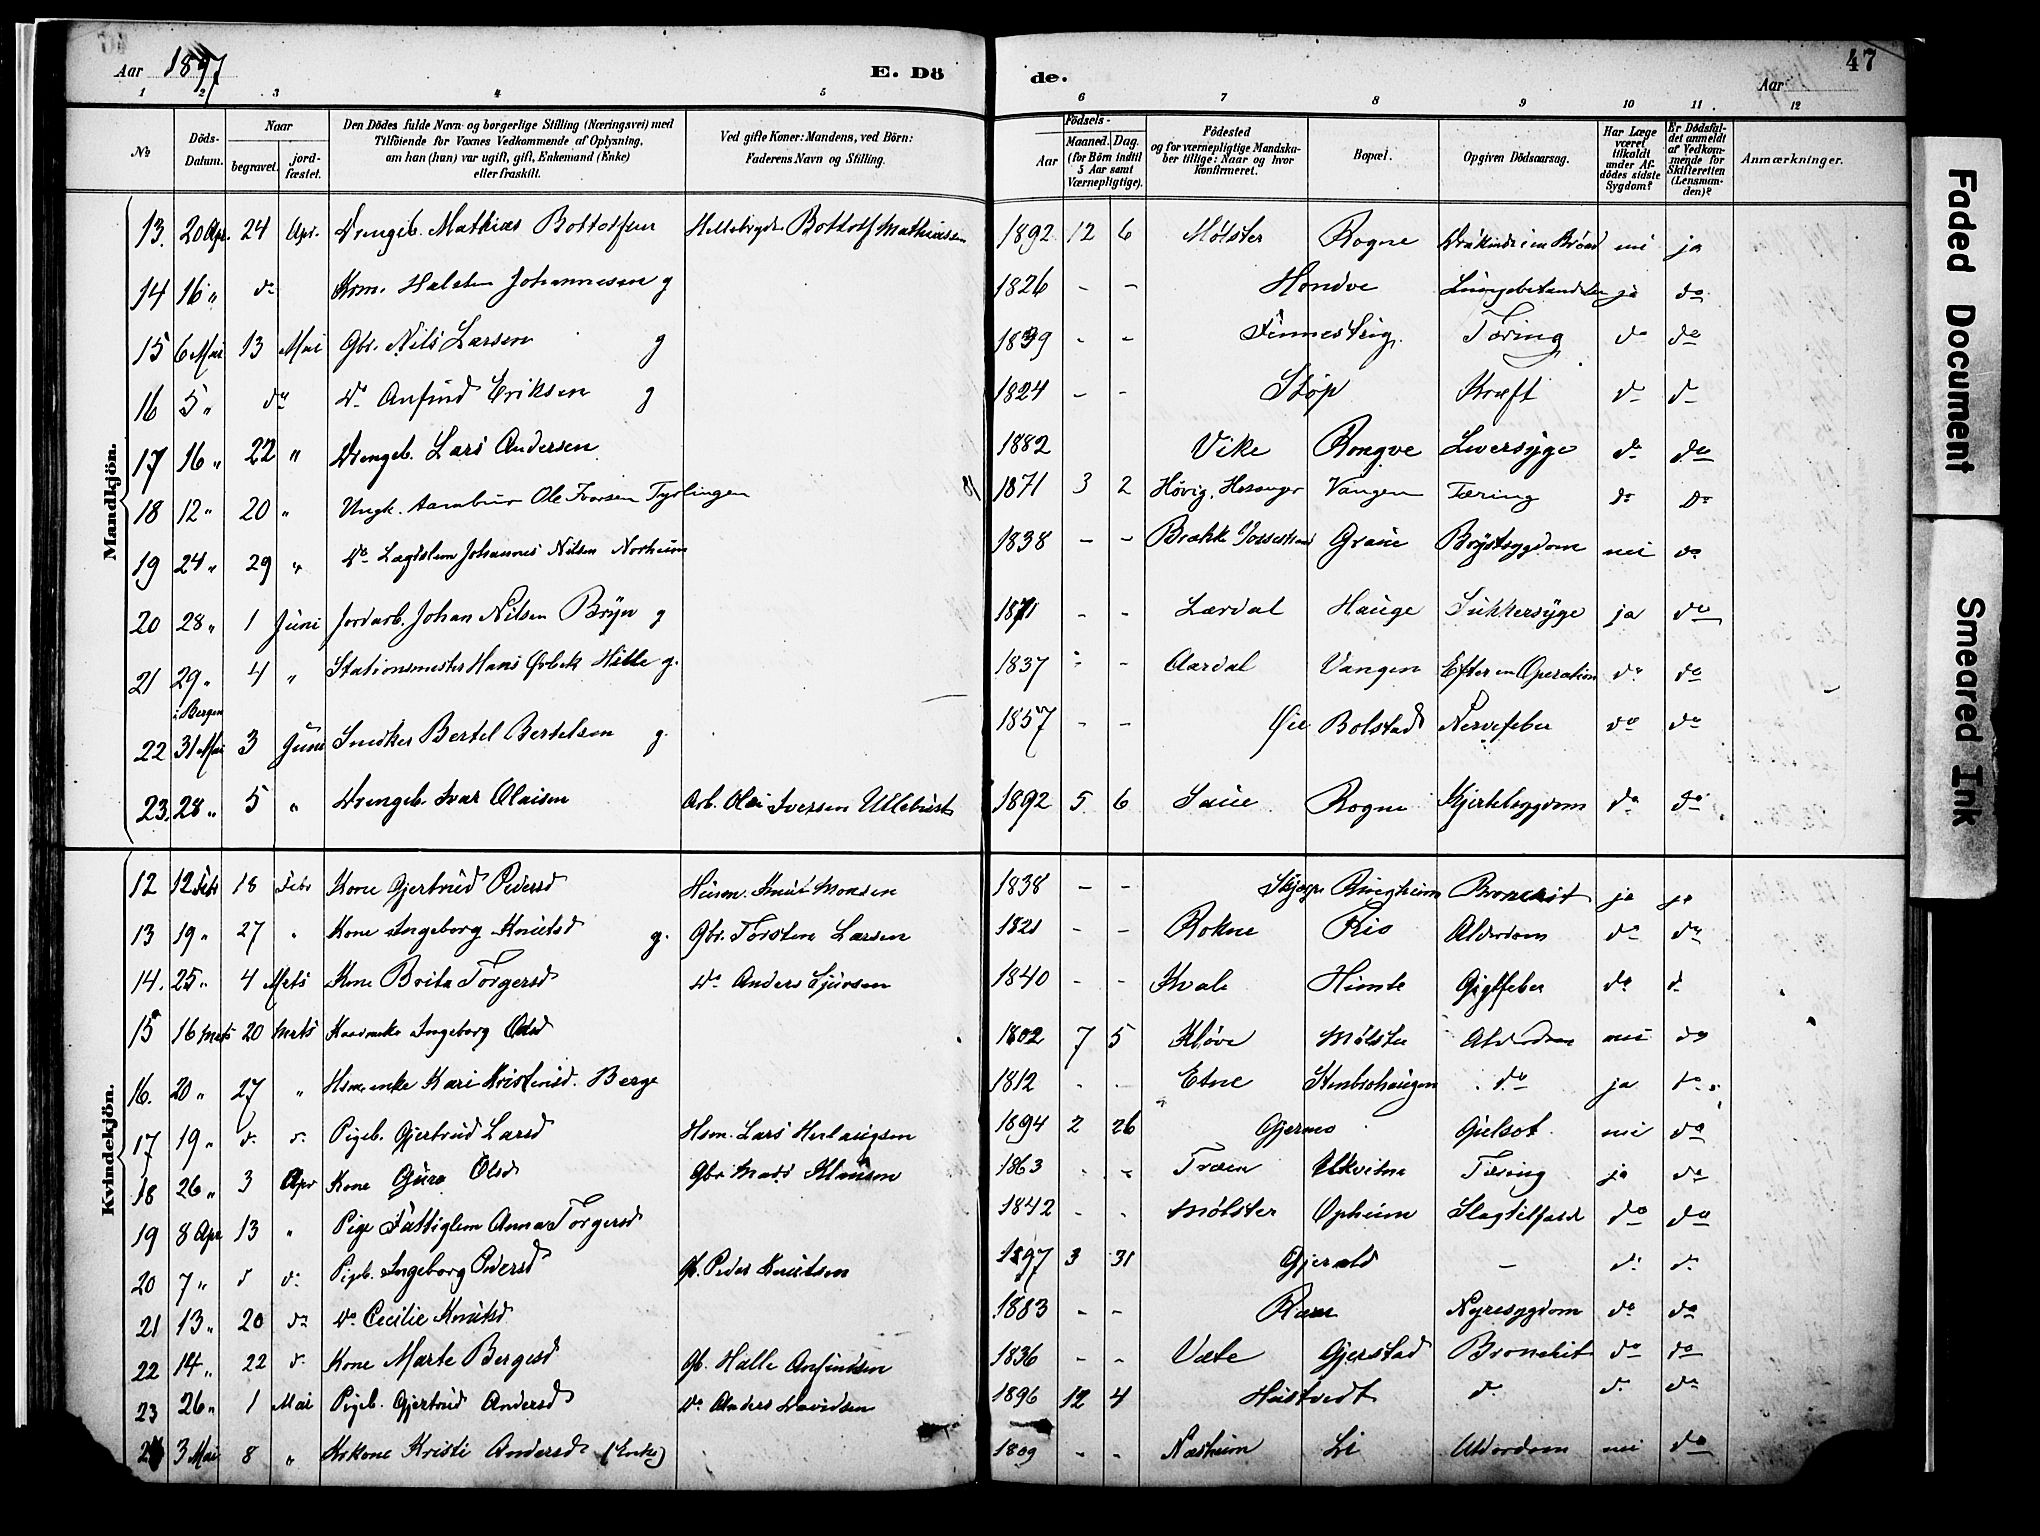 Aar 1897
E. Dö
de.
47
Aar
1 2 3 4 5 6 7 8 9 10 11 12
No
Döds-Datum.
Naar
begravet.
jordfæstet.
Den Dödes fulde Navn og borgerlige Stilling (Næringsvei) med
Tilföiende for Voxnes Vedkommende af Oplysning,
om han (hun) var ugift, gift, Enkemand (Enke)
eller fraskilt.
Ved gifte Koner: Mandens, ved Börn:
Faderens Navn og Stilling.
Födsels-
Aar
Maaned. Dag.
(for Börn indtil
5 Aar samt
Værnepligtige).
Födested
og for værnepligtige Mandskaber tillige: Naar og hvor
konfirmeret.
Bopæl.
Opgiven Dödsaarsag.
Har Læge
været
tilkaldt
under Afdödes sidste
Sygdom?
Er Dödsfaldet anmeldt
af Vedkommende for
Skifteretten
(Lensmanden)?
Anmærkninger.
Mandkjön.
13. 20 Apr. 24 Apr. Drengeb. Mathias Bottolfsen Bottolf Mathiasen 1892 12 6 Mølster Rogne Druknede i en Brønd nei ja
14 16 " do Halsten Johannesen g 1826 - - Hondve Lungebetændelse ja do
15 6 Mai 13 Mai Gbr. Nils Larsen g 1839 - - Tæring do do
16 5 " do Do Anfind Eriksen g 1824 - - Støp Kræft do do
17 16 " 22 " Drengeb. Lars Andersen 1882 Vike Rongve Leversyge do do
18 12 " 20 " Ungk. Ole Ivarsen Tyrlingen 1871 3 2 Høvig, Vangen Tæring do Do
19 24 " 29 " Do Lægdslem Johannes Nilsen Norheim 1838 - - Brække Graue Brystsygdom nei do
20 28 " 1 Juni Jordarb. Johan Nilsen Bryn g 1871 - - Lærdal Hauge Sukkersyge ja do
21 29 " 4 " Stationsmester Hans Ørbek Hille g. 1837 - - Aardal Vangen Efter en Operation do do
i Bergen
22 31 Mai 3 Juni Snedker Bertel Bertelsen g. 1857 - - Øie Bolstad Nervefeber do do
23. 28 " 5 " Drengeb. Ivar Olaisen Arb. Olai Iversen 1892 5 6 Saue Rogne Kjertelsygdom do do
Kvindekjön.
12 12 Febr 18 Febr Kone Gjertrud Pedersd Husm. Knut Monsen 1838 - - Ringheim Bronchit ja ja
13 19 " 27 " Kone Ingeborg Knutsd g. Gbr. Torsten Larsen 1821 - - Rokne Rio Alderdom do do
14. 25 " 4 Mrts Kone Brita Torgersd Do Anders Sjursen 1840 - - Kvale Himle Gigtfeber do d.
15 16 Mrts 20 Mrts Ingeborg Olsd 1802 7 5 Kløve Mølster Alderdom nei do
16. 20 " 27 " Hsm.enke Kari Kristensd. Berge 1812 - - Etne do ja do
17 19 " d. d. Pigeb. Gjertrud Larsd Hsm. Lars Herlaugsen 1894 2 26 Gjerme Gulsot nei do
18 26 " 3 Apr Kone Guro Olsd Gbr Mads 1863 - - Træen Ulkvitne Tæring ja do
19 8 Apr 13 " Pige Fattiglem Anna Torgersd 1842 - - Mølster Opheim Slagtilfæld do do
20 7 " d d. Pigeb. Ingeborg Pedersd Gb. Peder Knutsen 1897 3 31 Gjerald - d. d.
21 13 " 20 do Do Cecilie Knutsd 1883 - - Nyresygdom do do
22 14 " 22 d. Kone Marte Bergesd Gb. Halle Anfindsen 1836 - - Væte Gjerstad Bronchit do do
23 26 " 1 Mai Pigeb. Gjertrud Andersd Do Anders Davidsen 1896 12 4 Hustvedt d. d. do
24 3 Mai 8 " Kristi Andersd (Enke) 1809 - - Næsheim Li Alderdom nei do
Faded Document
Smeared Ink